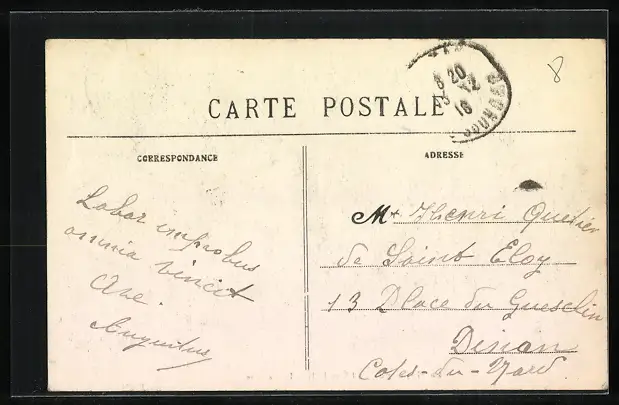 8
6 20
12
16
CARTE POSTALE
CORRESPONDANCE
ADRESSE
Labor improbus
omnia vincit
Ave.
Augustus
Mr Henri Questier
de Saint Eloy
13 Place du Guesclin
Dinan
Cotes-du-Nord